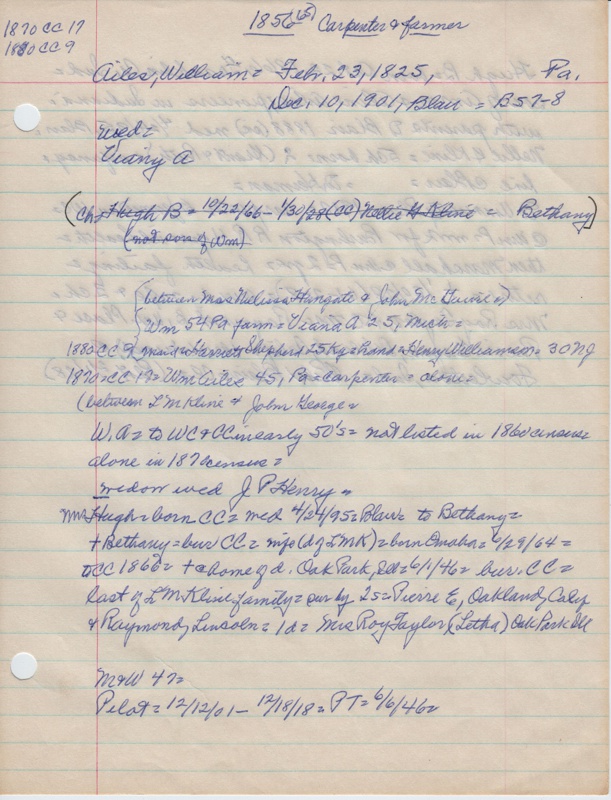 1870 CC 17
1880 CC 9
1856 (65) Carpenter & farmer
Ailes, William = Feb. 23, 1825, Pa.
Dec. 10, 1901, Blair = B57-8
wed =
Viany A
(Ch = Hugh B = 10/22/66 - 1/30/28 (CC) Nellie G Kline = Bethany)
(not son of Wm)
(between Mrs Melissa Hungate & John McGuire =)
Wm 54 Pa farm = Viana A 25, Mich =
1880 CC 9 maid = Harriott Shepherd 25 Ky = hand = Henry Williamson = 30 NJ
1870 = CC 17 = Wm Ailes 45, Pa = carpenter = alone =
(between L M Kline & John George =
W. A = to WC & CC in early 50's = not listed in 1860 census =
alone in 1870 census =
widow wed J P Henry =
Mrs Hugh = born CC = wed 4/24/95 = Blair = to Bethany =
+ Bethany = bur CC = wife (d of L M K) = born Omaha = 6/29/64 =
to CC 1866 = + @ home of d. Oak Park, = 6/1/46 = bur. CC =
last of L M Kline family = sur by 2s = Pierre E, Oakland, Calif
& Raymond, Lincoln = 1d = Mrs Roy Taylor (Letha) Oak Park Ill
M & W 47 =
Pilot = 12/12/01 - 12/18/18 = PT = 6/6/46 =